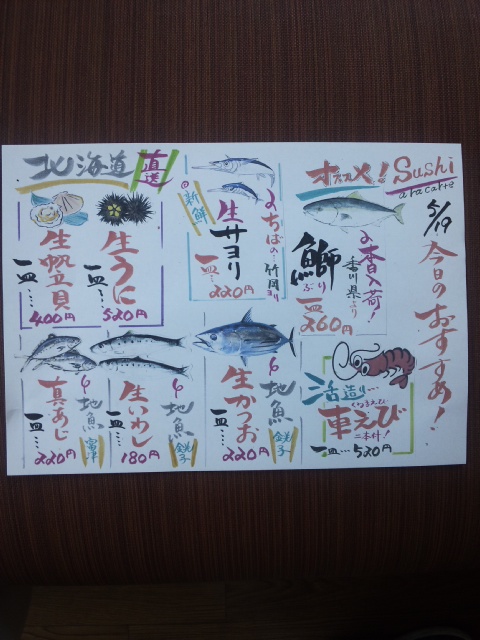 オススメ! Sushi
aracarte
5/19
今日のおすすめ!
一番入荷!
香川県より
鰤
ぶり
一皿
260円
ちばの
竹岡ヨリ
新鮮
生サヨリ
一皿…
220円
北海道直送
生うに
一皿…
520円
生帆立貝
一皿…
400円
活造り…
くるまえび
車えび
二本付!
一皿…520円
地魚
銚子
生かつお
一皿…
220円
地魚
銚子
生いわし
一皿…
180円
地魚
富津
真あじ
一皿…
220円